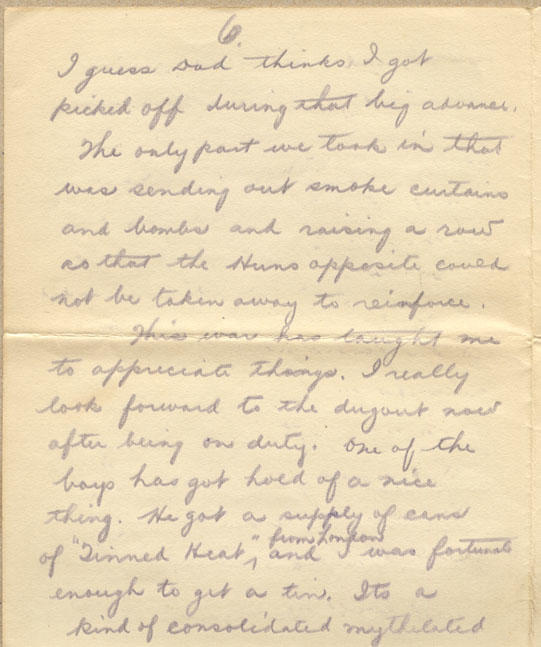 6.
I guess Dad thinks I got
picked off during that big advance.
The only part we took in that
was sending out smoke curtains
and bombs and raising a row
so that the Huns opposite could
not be taken away to reinforce.
This war has taught me
to appreciate things. I really
look forward to the dugout now
after being on duty. One of the
boys has got hold of a nice
thing. He got a supply of cans
from London
of "Tinned Heat", and I was fortunate
enough to get a tin. Its a
kind of consolidated mythelated